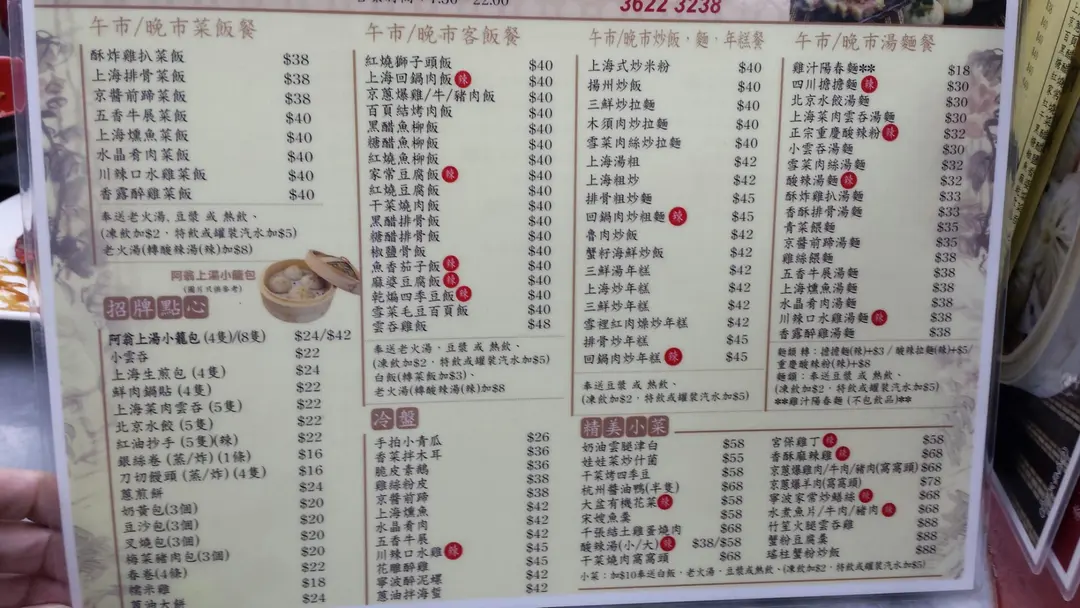 3622 3238
午市/晚市菜飯餐
酥炸雞扒菜飯 $38
上海排骨菜飯 $38
京醬前蹄菜飯 $38
五香牛展菜飯 $40
上海燻魚菜飯 $40
水晶肴肉菜飯 $40
川辣口水雞菜飯 $40
香露醉雞菜飯 $40
奉送老火湯、豆漿 或 熱飲、
(凍飲加$2，特飲或罐裝汽水加$5)
老火湯(轉酸辣湯(辣)加$8)
阿翁上湯小籠包
(圖片只供參考)
招牌點心
阿翁上湯小龍包 (4隻)/(8隻) $24/$42
小雲吞 $22
上海生煎包 (4隻) $24
鮮肉鍋貼 (4隻) $22
上海菜肉雲吞 (5隻) $22
北京水餃 (5隻) $22
紅油抄手 (5隻)(辣) $22
銀絲卷 (蒸/炸) (1條) $16
刀切饅頭 (蒸/炸) (4隻) $16
蔥煎餅 $24
奶黃包(3個) $20
豆沙包(3個) $20
叉燒包(3個) $20
梅菜豬肉包(3個) $20
春卷(4條) $22
糯米雞 $18
蔥油大餅 $24
午市/晚市客飯餐
紅燒獅子頭飯 $40
上海回鍋肉飯 辣 $40
京蔥爆雞/牛/豬肉飯 $40
百頁結烤肉飯 $40
黑醋魚柳飯 $40
糖醋魚柳飯 $40
紅燒魚柳飯 $40
家常豆腐飯 辣 $40
紅燒豆腐飯 $40
干菜燒肉飯 $40
黑醋排骨飯 $40
糖醋排骨飯 $40
椒鹽骨飯 $40
魚香茄子飯 辣 $40
麻婆豆腐飯 辣 $40
乾煸四季豆飯 辣 $40
雪菜毛豆百頁飯 $40
雲吞雞飯 $48
奉送老火湯、豆漿 或 熱飲、
(凍飲加$2，特飲或罐裝汽水加$5)
白飯(轉菜飯加$3)、
老火湯(轉酸辣湯(辣)加$8
冷盤
手拍小青瓜 $26
香菜拌木耳 $36
脆皮素鵝 $36
雞絲粉皮 $38
京醬前蹄 $38
上海燻魚 $42
水晶肴肉 $42
五香牛展 $42
川辣口水雞 辣 $45
花雕醉雞 $45
寧波醉泥螺 $42
蔥油拌海蜇 $42
午市/晚市炒飯，麵，年糕餐
上海式炒米粉 $40
揚州炒飯 $40
三鮮炒拉麵 $40
木須肉炒拉麵 $40
雪菜肉絲炒拉麵 $40
上海湯粗 $42
上海粗炒 $42
排骨炒粗麵 $45
回鍋肉炒粗麵 辣 $45
魯肉炒飯 $42
蟹籽海鮮炒飯 $42
三鮮湯年糕 $42
上海炒年糕 $42
三鮮炒年糕 $42
雪裡紅肉燥炒年糕 $42
排骨炒年糕 $45
回鍋肉炒年糕 辣 $45
奉送豆漿 或 熱飲、
(凍飲加$2，特飲或罐裝汽水加$5)
午市/晚市湯麵餐
雞汁陽春麵** $18
四川擔擔麵 辣 $30
北京水餃湯麵 $30
上海菜肉雲吞湯麵 $30
正宗重慶酸辣粉 辣 $32
小雲吞湯麵 $30
雪菜肉絲湯麵 $32
酸辣湯麵 辣 $32
酥炸雞扒湯麵 $33
香酥排骨湯麵 $33
青菜餵麵 $35
京醬前蹄湯麵 $35
雞絲餵麵 $38
五香牛展湯麵 $38
上海燻魚湯麵 $38
水晶肴肉湯麵 $38
川辣口水雞湯麵 辣 $38
香露醉雞湯麵 $38
麵類 轉：擔擔麵(辣)+$3 / 酸辣拉麵(辣)+$5/
重慶酸辣粉(辣)+$8
麵類：奉送豆漿 或 熱飲、
(凍飲加$2，特飲或罐裝汽水加$5)
**雞汁陽春麵 (不包飲品)**
精美小菜
奶油雲腿津白 $58
娃娃菜炒什菌 $55
干菜烤四季豆 $58
杭州醬油鴨(半隻) $68
大盆有機花菜 辣 $58
宋嫂魚羹 $58
千張結土雞蛋燒肉 $68
酸辣湯(小/大) 辣 $38/$58
干菜燒肉窩窩頭 $68
宮保雞丁 辣 $58
香酥麻辣雞 辣 $68
京蔥爆雞肉/牛肉/豬肉(窩窩頭) $68
京蔥爆羊肉(窩窩頭) $78
寧波家常炒鱔絲 辣 $68
水煮魚片/牛肉/豬肉 辣 $68
竹笙火腿雲吞雞 $88
蟹粉豆腐羹 $88
瑤柱蟹粉炒飯 $88
小菜：加$10奉送白飯、老火湯、豆漿或熱飲、(凍飲加$2，特飲或罐裝汽水加$5)